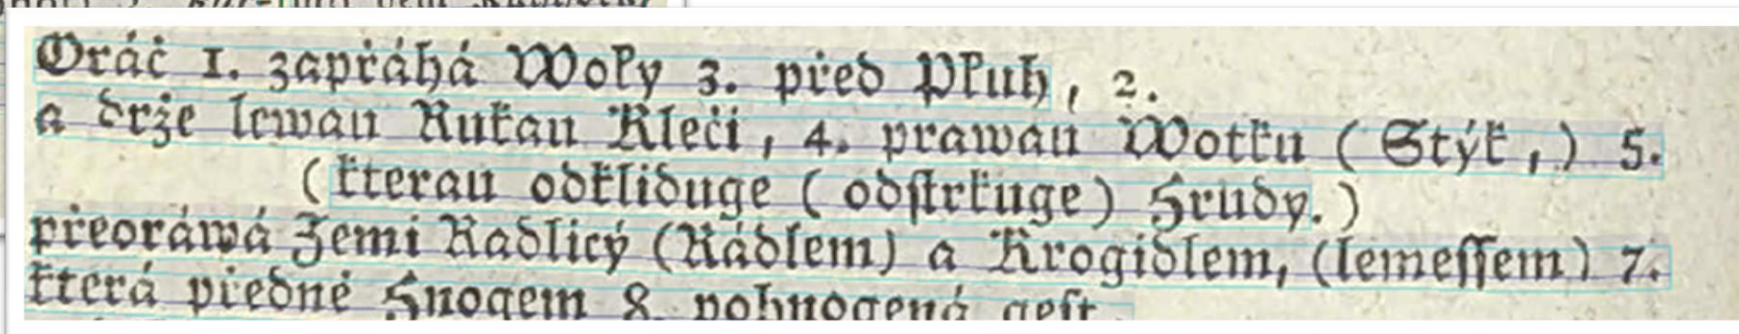 Oráč 1. zapřáhá Woly 3. před Pluh, 2.
a drže lewau Rukau Kleči, 4. prawau Wotku (Stýk,) 5.
(kterau odkliduge (odstrkuge) Hrudy.)
přeoráwá Zemi Radlicý (Rádlem) a Krogidlem, (lemessem) 7.
která předně Hnogem 8. pohnogená gest.